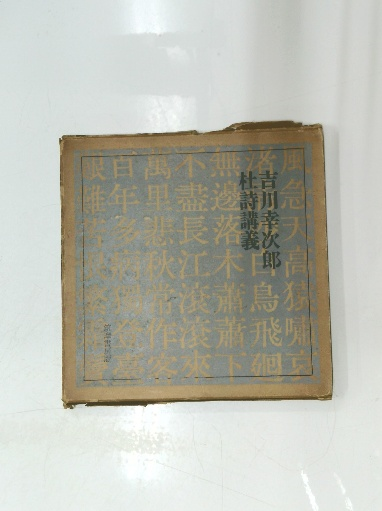 風急天高猿嘯哀
白鳥飛廻
吉川幸次郎
杜詩講義
無邊落木蕭蕭下
不盡長江滾滾來
萬里悲秋常作客
百年多病獨登臺
艱難苦恨
筑摩書房